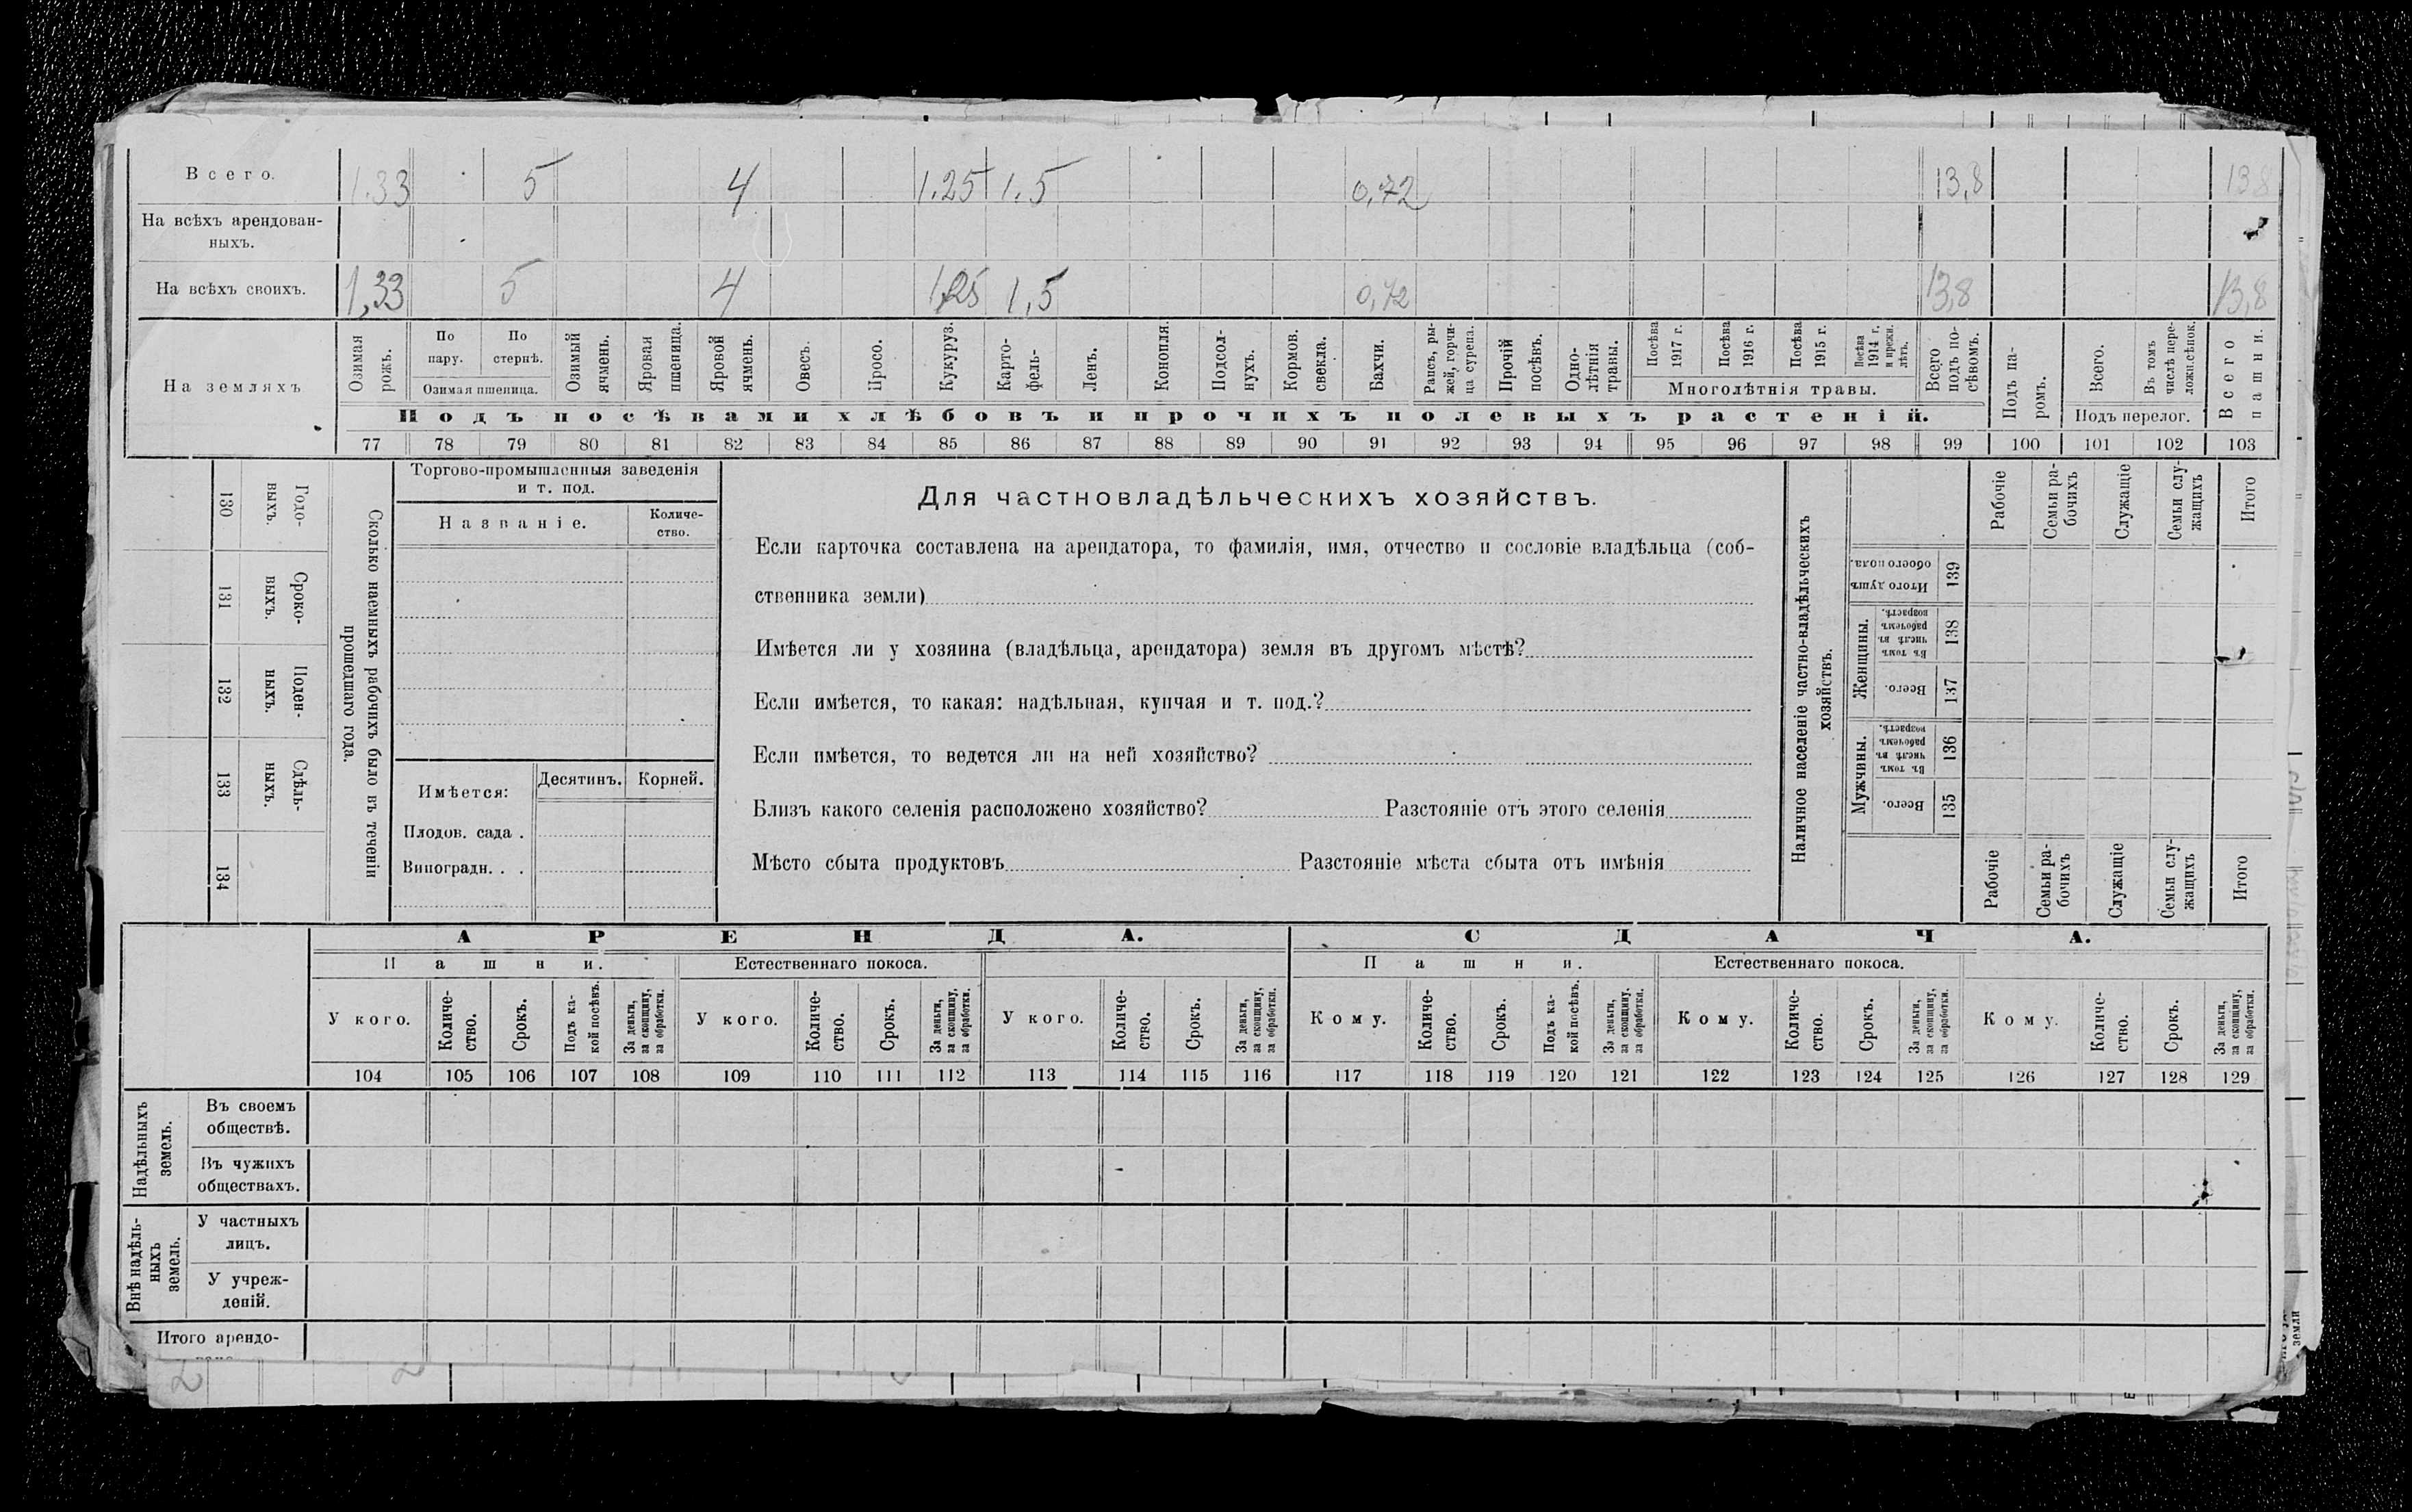 Всего. 1.33 5 4 1.25 1.5 0,72 13,8 138
На всѣхъ арендован-
ныхъ.
На всѣхъ своихъ. 1,33 5 4 1,25 1,5 0,72 13,8 13,8
На земляхъ
Озимая рожь.
По пару.
По стернѣ.
Озимая пшеница.
Озимый ячмень.
Яровая пшеница.
Яровой ячмень.
Овесъ.
Просо.
Кукуруз.
Карто-
фель-
Ленъ.
Конопля.
Подсол-
нухъ.
Кормов. свекла.
Бахчи.
Рапсъ, ры-
жей, горчи-
ца сурепа.
Прочій посѣвъ.
Одно-
лѣтнія травы.
Посѣва 1917 г.
Посѣва 1916 г.
Посѣва 1915 г.
Посѣва 1914 г. и прежн. лѣтъ.
Многолѣтнія травы.
Всего подъ по-
сѣвомъ.
Подъ па-
ромъ.
Всего.
Въ томъ числѣ пере-
ложн.сѣнок.
Подъ перелог.
Всего пашни.
Подъ посѣвами хлѣбовъ и прочихъ полевыхъ растеній.
77 78 79 80 81 82 83 84 85 86 87 88 89 90 91 92 93 94 95 96 97 98 99 100 101 102 103
130 Годо-
выхъ.
131 Сроко-
выхъ.
132 Поден-
ныхъ.
133 Сдѣль-
ныхъ.
134
Сколько наемныхъ рабочихъ было въ теченіи
прошедшаго года.
Торгово-промышленныя заведенія
и т. под.
Названіе.
Количе-
ство.
Имѣется:
Десятинъ.
Корней.
Плодов. сада .
Виноградн. . .
Для частновладѣльческихъ хозяйствъ.
Если карточка составлена на арендатора, то фамилія, имя, отчество и сословіе владѣльца (соб-
ственника земли)
Имѣется ли у хозяина (владѣльца, арендатора) земля въ другомъ мѣстѣ?
Если имѣется, то какая: надѣльная, купчая и т. под.?
Если имѣется, то ведется ли на ней хозяйство?
Близъ какого селенія расположено хозяйство? Разстояніе отъ этого селенія
Мѣсто сбыта продуктовъ Разстояніе мѣста сбыта отъ имѣнія
Наличное населеніе частно-владѣльческихъ
хозяйствъ.
Рабочіе
Семьи ра-
бочихъ
Служащіе
Семьи слу-
жащихъ
Итого
Итого душъ
обоего пола.
139
Женщины.
Въ томъ числѣ въ рабочемъ возрастѣ.
138
Всего.
137
Мужчины.
Въ томъ числѣ въ рабочемъ возрастѣ.
136
Всего.
135
Рабочіе
Семьи ра-
бочихъ
Служащіе
Семьи слу-
жащихъ
Итого
АРЕНДА. СДАЧА.
Пашни. Естественнаго покоса. Пашни. Естественнаго покоса.
У кого.
Количе-
ство.
Срокъ.
Подъ ка-
кой посѣвъ.
За деньги,
за скопщину,
за обработки.
У кого.
Количе-
ство.
Срокъ.
За деньги,
за скопщину,
за обработки.
У кого.
Количе-
ство.
Срокъ.
За деньги,
за скопщину,
за обработки.
Кому.
Количе-
ство.
Срокъ.
Подъ ка-
кой посѣвъ.
За деньги,
за скопщину.
за обработки.
Кому.
Количе-
ство.
Срокъ.
За деньги,
за скопщину,
за обработки.
Кому.
Количе-
ство.
Срокъ.
За деньги,
за скопщину,
за обработки.
104 105 106 107 108 109 110 111 112 113 114 115 116 117 118 119 120 121 122 123 124 125 126 127 128 129
Надѣльныхъ
земель.
Въ своемъ
обществѣ.
Въ чужихъ
обществахъ.
Внѣ надѣль-
ныхъ
земель.
У частныхъ
лицъ.
У учреж-
деній.
Итого арендо-
земли